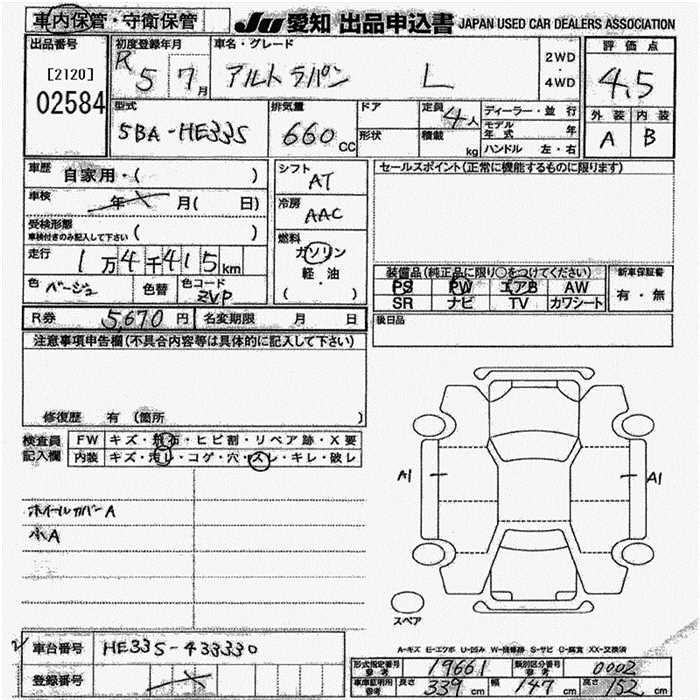 車内保管・守衛保管
JU 愛知 出品申込書 JAPAN USED CAR DEALERS ASSOCIATION
出品番号
[2120]
02584
初度登録年月
R 5 7月
車名・グレード
アルトラパン L
2WD
・
4WD
評価点
4.5
外装 内装
A B
型式
5BA-HE33S
排気量
660 CC
ドア
形状
定員 4人
積載 kg
ディーラー・並行
モデル年式 年
ハンドル 左・右
車歴 自家用・( )
車検 年 月( 日)
受検形態
車検付きのみ記入して下さい ( )
走行 1万4千415km
色 ベージュ 色替 色コード ZVP
シフト
AT
冷房
AAC
燃料
ガソリン
軽・油
( )
セールスポイント(正常に機能するものに限ります)
装備品(純正品に限り○をつけてください)
PS PW エアB AW
SR ナビ TV カワシート
新車保証書
有・無
R券 5,670円 名変期限 月 日
後日品
注意事項申告欄(不具合内容等は具体的に記入して下さい)
修復歴 有 (箇所 )
検査員
記入欄
FW キズ・飛石・ヒビ割・リペア跡・X要
内装 キズ・汚レ・コゲ・穴・スレ・キレ・破レ
ホイールカバーA
小A
A1 A1
スペア
A-キズ E-エクボ U-凹み W-補修跡 S-サビ C-腐食 XX-交換済
車台番号 HE33S-433330
登録番号
形式指定番号
参考 19661
類別区分番号
参考 0002
車庫証明用
参考 長さ 339cm 幅 147cm 高さ 152cm